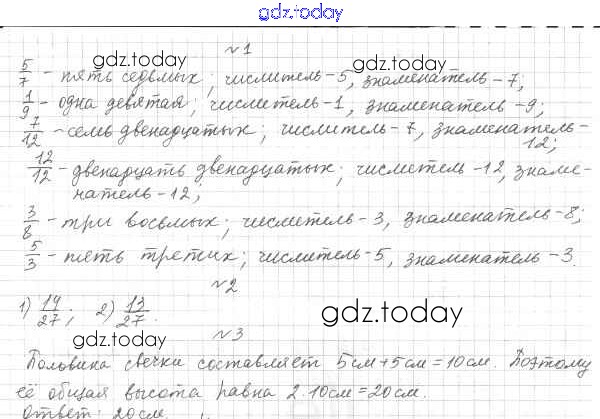 gdz.today
gdz.today gdz.today
№1
5/7 - пять седьмых; числитель-5, знаменатель-7;
1/9 - одна девятая; числитель-1, знаменатель-9;
7/12 - семь двенадцатых; числитель-7, знаменатель-
12;
12/12 - двенадцать двенадцатых; числитель-12, знаме-
натель-12;
3/8 - три восьмых; числитель-3, знаменатель-8;
5/3 - пять третих; числитель-5, знаменатель-3.
№2
1) 14/27; 2) 13/27.
gdz.today gdz.today
№3
Половина свечки составляет 5см+5см=10см. Поэтому
её общая высота равна 2·10см=20см.
Ответ: 20см.